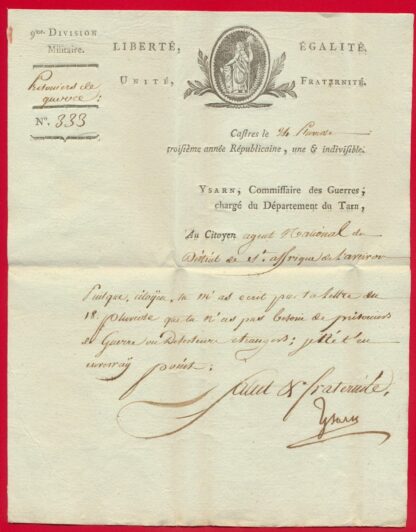 9me. DIVISION
Militaire.
LIBERTÉ, ÉGALITÉ,
UNITÉ, FRATERNITÉ.
Prisoniers de
guerre
N°. 333
Castres le 24 Pluviose
troisième année Républicaine, une & indivisible.
YSARN, Commissaire des Guerres,
chargé du Département du Tarn,
Au Citoyen agent National du
District de St. affrique de l'aveiron
Puisque, citoyen, tu m'as ecrit par ta lettre du
18 pluviose que tu n'as pas besoin de prisoniers
de Guerre ou Deserteurs etrangers; je ne t'en
enverray point;
Salut & fraternité,
Ysarn